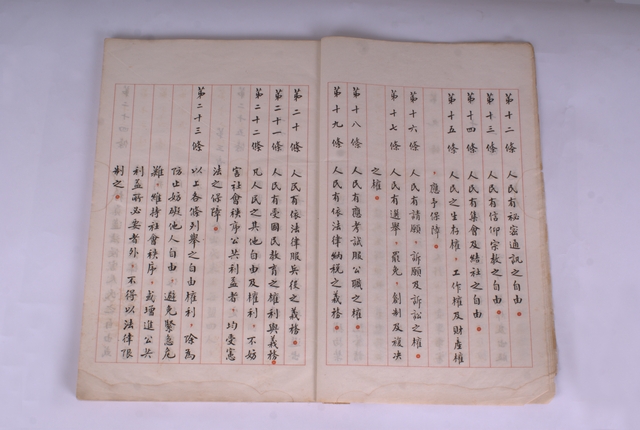 第十二條 人民有秘密通訊之自由。
第十三條 人民有信仰宗教之自由。
第十四條 人民有集會及結社之自由。
第十五條 人民之生存權，工作權及財產權
，應予保障。
第十六條 人民有請願，訴願及訴訟之權。
第十七條 人民有選舉，罷免，創制及複決
之權。
第十八條 人民有應考試服公職之權。
第十九條 人民有依法律納稅之義務。
第二十條 人民有依法律服兵役之義務。
第二十一條 人民有受國民教育之權利與義務。
第二十二條 凡人民之其他自由及權利，不妨
害社會秩序公共利益者，均受憲
法之保障。
第二十三條 以上各條列舉之自由權利，除為
防止妨礙他人自由，避免緊急危
難，維持社會秩序，或增進公共
利益所必要者外，不得以法律限
制之。